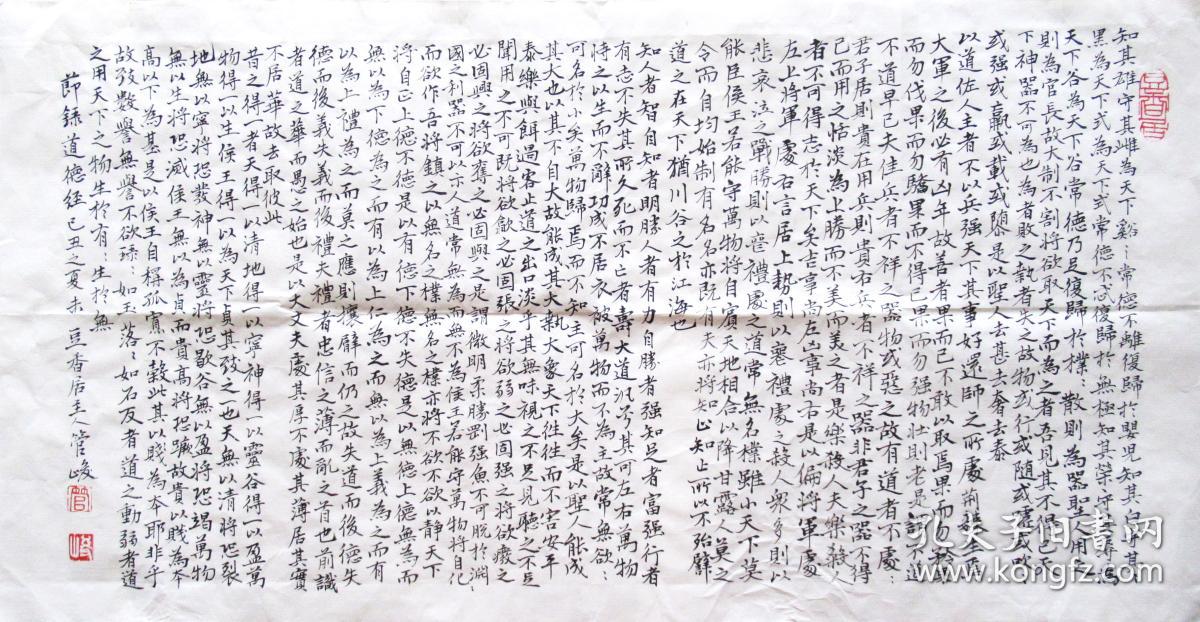 知其雄守其雌為天下谿〻常德不離復歸於嬰兒知其白守其
黑為天下式為天下式常德不忒復歸於無極知其榮守其辱為
天下谷為天下谷常德乃足復歸於樸〻散則為器聖人用之
則為官長故大制不割將欲取天下而為之者吾見其不得已天
下神器不可為也為者敗之執者失之故物或行或隨或噓或吹
或强或羸或載或隳是以聖人去甚去奢去泰
以道佐人主者不以兵强天下其事好還師之所處荊棘生焉
大軍之後必有凶年故善者果而已不敢以取焉果而勿矜果
而勿伐果而勿驕果而不得已果而勿强物壯則老是謂不道
不道早已夫佳兵者不祥之器物或惡之故有道者不處〻
君子居則貴在用兵則貴右兵者不祥之器非君子之器不得
已而用之恬淡為上勝而不美而美之者是樂殺人夫樂殺人
者不可得志於天下矣吉事尚左凶事尚右是以偏將軍處
左上將軍處右言居上勢則以喪禮處之殺人衆多則以
悲哀泣之戰勝則以喪禮處之道常無名樸雖小天下莫
能臣侯王若能守萬物將自賓天地相合以降甘露人莫之
令而自均始制有名名亦既有夫亦將知止知止所以不殆譬
道之在天下猶川谷之於江海也
知人者智自知者明勝人者有力自勝者强知足者富强行者
有志不失其所久死而不亡者壽大道汎兮其可左右萬物
恃之以生而不辭功成不居衣被萬物而不為主故常無欲〻
可名於小矣萬物歸焉而不知主可名於大矣是以聖人能成
其大也以其不自大故能成其大執大象天下往往而不害安平
泰樂與餌過客止道之出口淡乎其無味視之不足見聽之不足
聞用之不可既將欲歙之必固張之將欲弱之必固强之將欲廢之
必固興之將欲奪之必固與之是謂微明柔勝剛强魚不可脫於淵〻
國之利器不可以示人道常無為而無不為侯王若能守萬物將自化
而欲作吾將鎮之以無名之樸無名之樸亦將不欲不欲以靜天下
將自正上德不德是以有德下德不失德是以無德上德無為而
無以為下德為之而有以為上仁為之而無以為上義為之而有
以為上禮為之而莫之應則攘臂而仍之故失道而後德失
德而後義失義而後禮夫禮者忠信之薄而亂之首也前識
者道之華而愚之始也是以大丈夫處其厚不處其薄居其實
不居華故去取彼此
昔之得一者天得一以清地得一以寧神得一以靈谷得一以盈萬
物得一以生侯王得一以為天下貞其致之一也天無以清將恐裂
地無以寧將恐發神無以靈將恐歇谷無以盈將恐竭萬物
無以生將恐滅侯王無以為貞而貴高將恐蹶故貴以賤為本
高以下為基是以侯王自稱孤寡不穀此其以賤為本耶非乎
故致數譽無譽不欲琭〻如玉落〻如石反者道之動弱者道
之用天下之物生於有〻生於無
節錄道德經己丑之夏末豆香居主人管峻
管
峻
豆香居
孔夫子旧书网
www.kongfz.com